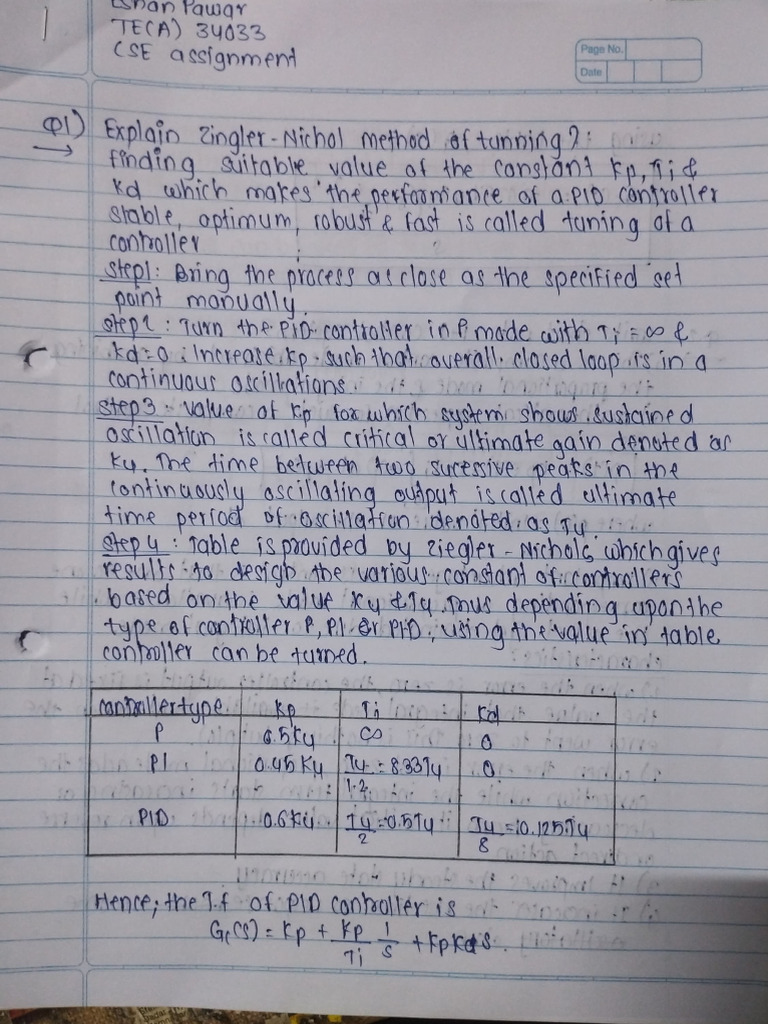 Ishan Pawar
TE(A) 34033
CSE assignment
Page No.
Date
Q1) Explain Zingler-Nichol method of tunning?:
→ finding suitable value of the constant Kp, Ti &
Kd which makes the performance of a PID controller
stable, optimum, robust & fast is called tuning of a
controller
step1: Bring the process as close as the specified set
point manually.
step2: Turn the PID controller in P mode with Ti = ∞ &
Kd=0. Increase Kp such that overall closed loop is in a
continuous oscillations.
step3: value of Kp for which system shows sustained
oscillation is called critical or ultimate gain denoted as
Ku. The time between two sucessive peaks in the
continuously oscillating output is called ultimate
time period of oscillation denoted as Tu
step4: Table is provided by Ziegler-Nichols which gives
results to design the various constant of controllers
based on the value Ku & Tu. Thus depending upon the
type of controller P, PI or PID, using the value in table
controller can be turned.
controller type Kp Ti Kd
P 0.5Ku ∞ 0
PI 0.45Ku Tu/1.2 = 8.33Tu 0
PID 0.6Ku Tu/2 = 0.5Tu Tu/8 = 0.125Tu
Hence, the T.f of PID controller is
Gc(s) = Kp + Kp/Ti 1/s + KpKds.